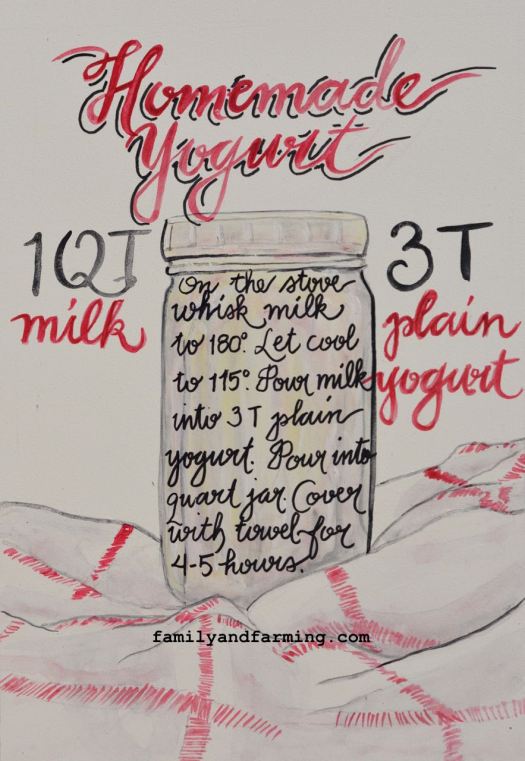 Homemade
Yogurt
1QT
milk
3T
plain
yogurt
On the stove
whisk milk
to 180°. Let cool
to 115°. Pour milk
into 3 T plain
yogurt. Pour into
quart jar. Cover
with towel for
4-5 hours.
familyandfarming.com